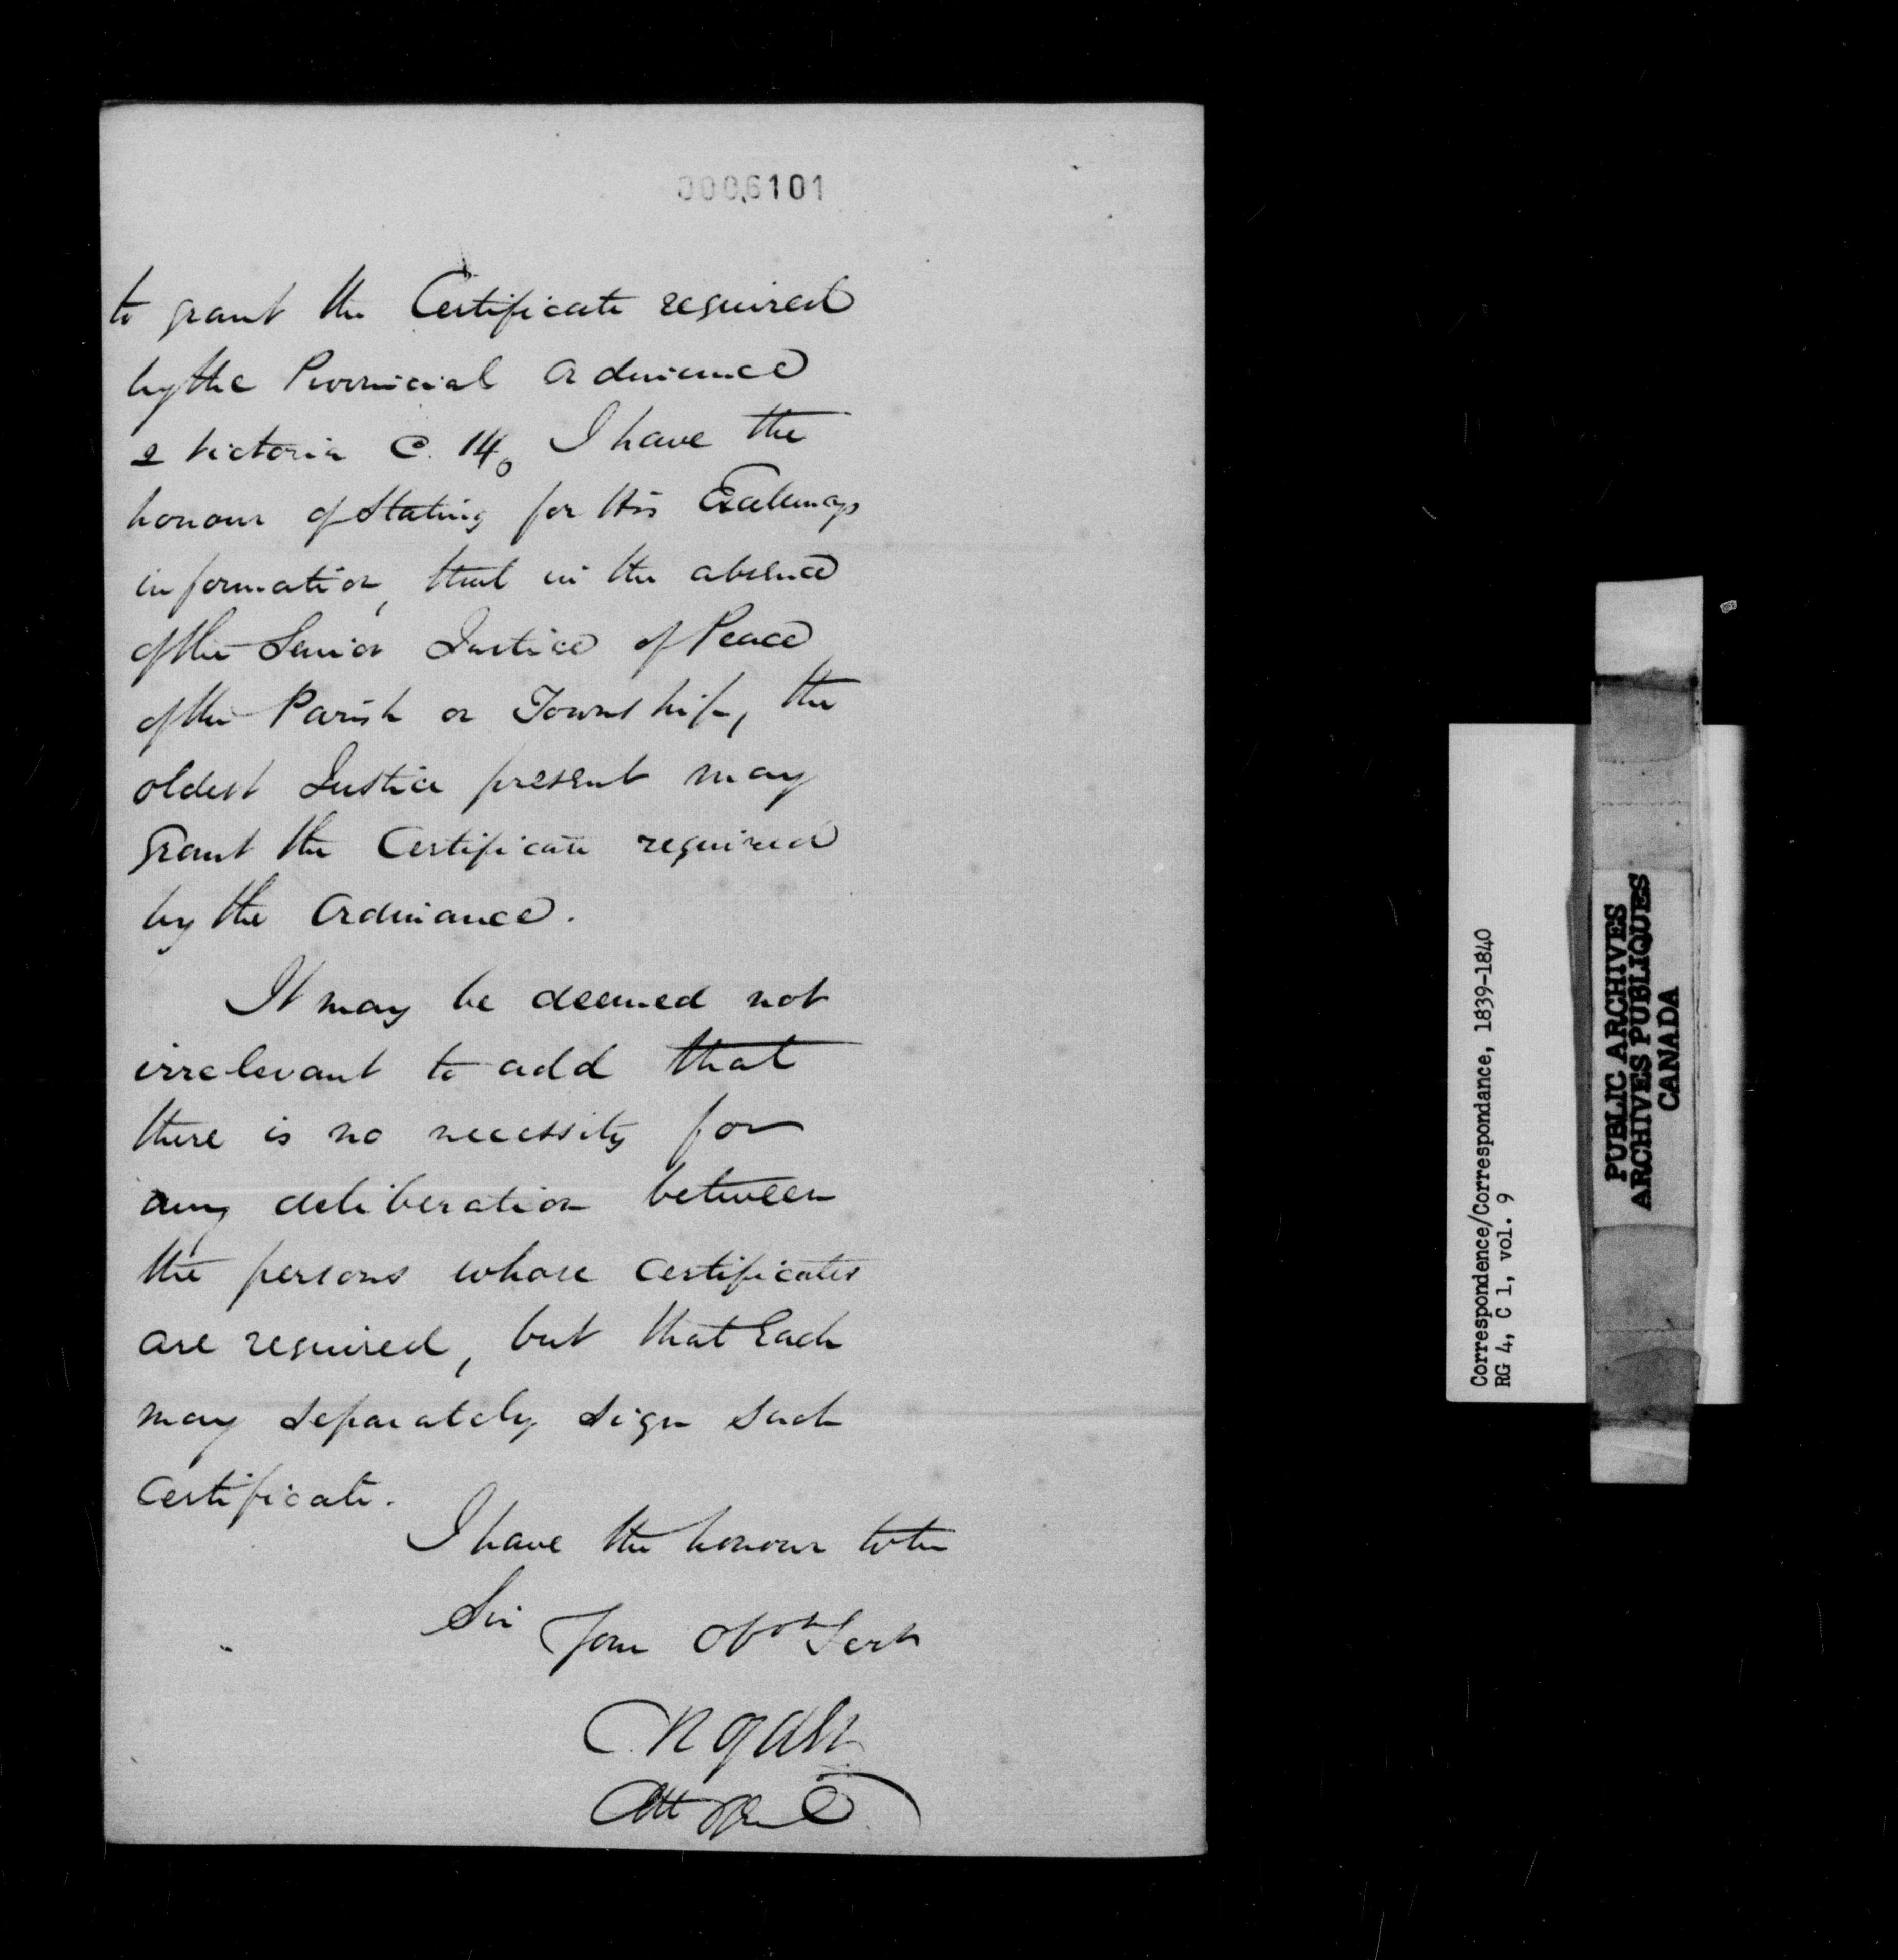 0006101
to grant the Certificate required
by the Provincial Ordinance
2 Victoria C. 14, I have the
honour of Stating for His Excellencys
information, that in the absence
of the Senior Justice of Peace
of the Parish or Township, the
oldest Justice present may
Grant the Certificate required
by the Ordinance.
It may be deemed not
irrelevant to add that
there is no necessity for
any deliberation between
the persons whose certificates
are required, but that Each
may separately sign such
Certificate.
I have the honour to be
Sir
Your Obdt Servt
C R Ogden
Att Genl
Correspondence/Correspondance, 1839-1840
RG 4, C 1, vol. 9
PUBLIC ARCHIVES
ARCHIVES PUBLIQUES
CANADA